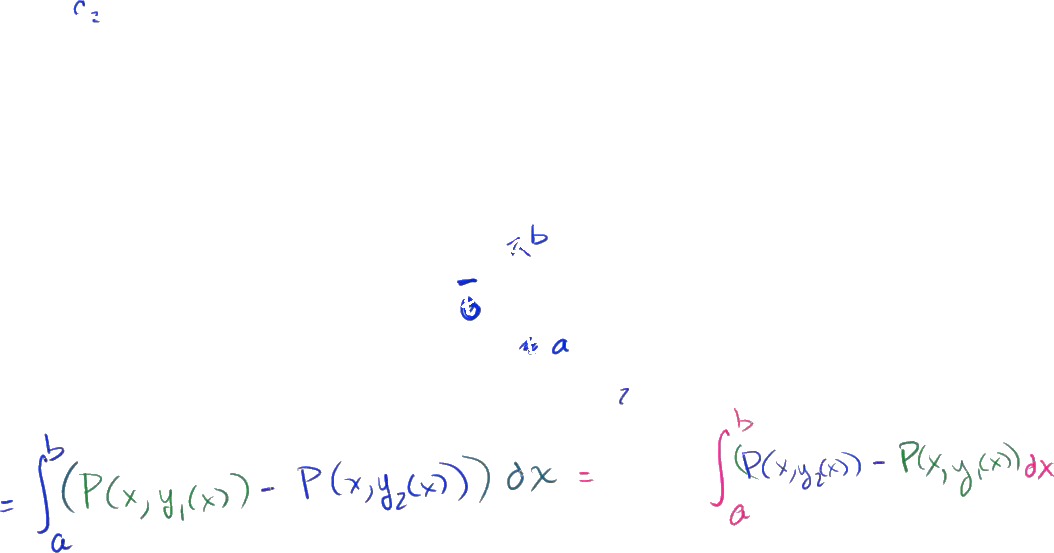 C₂
b
a
= ∫ₐᵇ (P(x, y₁(x)) - P(x, y₂(x))) dx = ∫ₐᵇ (P(x, y₂(x)) - P(x, y₁(x)) dx